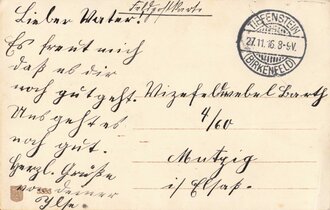 Feldpostkarte
TIEFENSTEIN
27.11.16. 8-9V.
(BIRKENFELD)
Lieber Vater!
Es freut mich
daß es dir
noch gut geht.
Uns geht es
noch gut.
Herzl. Grüße
von deiner
Ilse.
Vizefeldwebel Barth
4/60
Mutzig
i/ Elsaß.